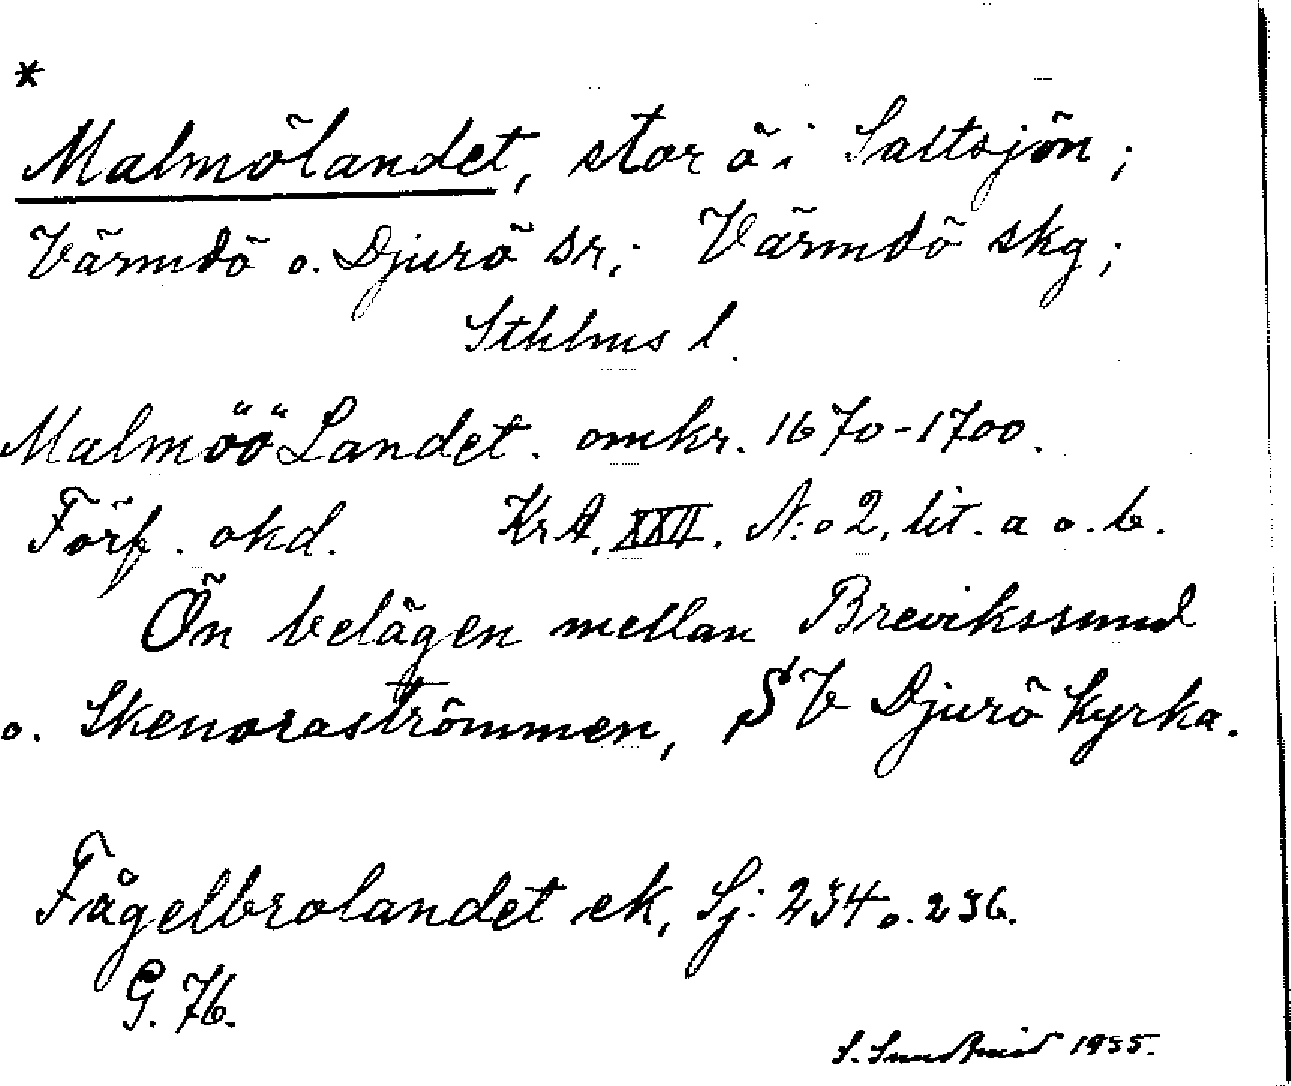 *
Malmölandet, stor ö i Saltsjön;
Värmdö o. Djurö sr; Värmdö skg;
Sthlms l.
Malmöö Landet. omkr. 1670-1700.
Förf. okd. Kr A. XXII. N:o 2, lit. a o. b.
Ön belägen mellan Brevikssund
o. Skenoraströmmen, SV Djurö kyrka.
Fågelbrolandet ek, Sj: 234 o. 236.
G. 76.
S. 1955.